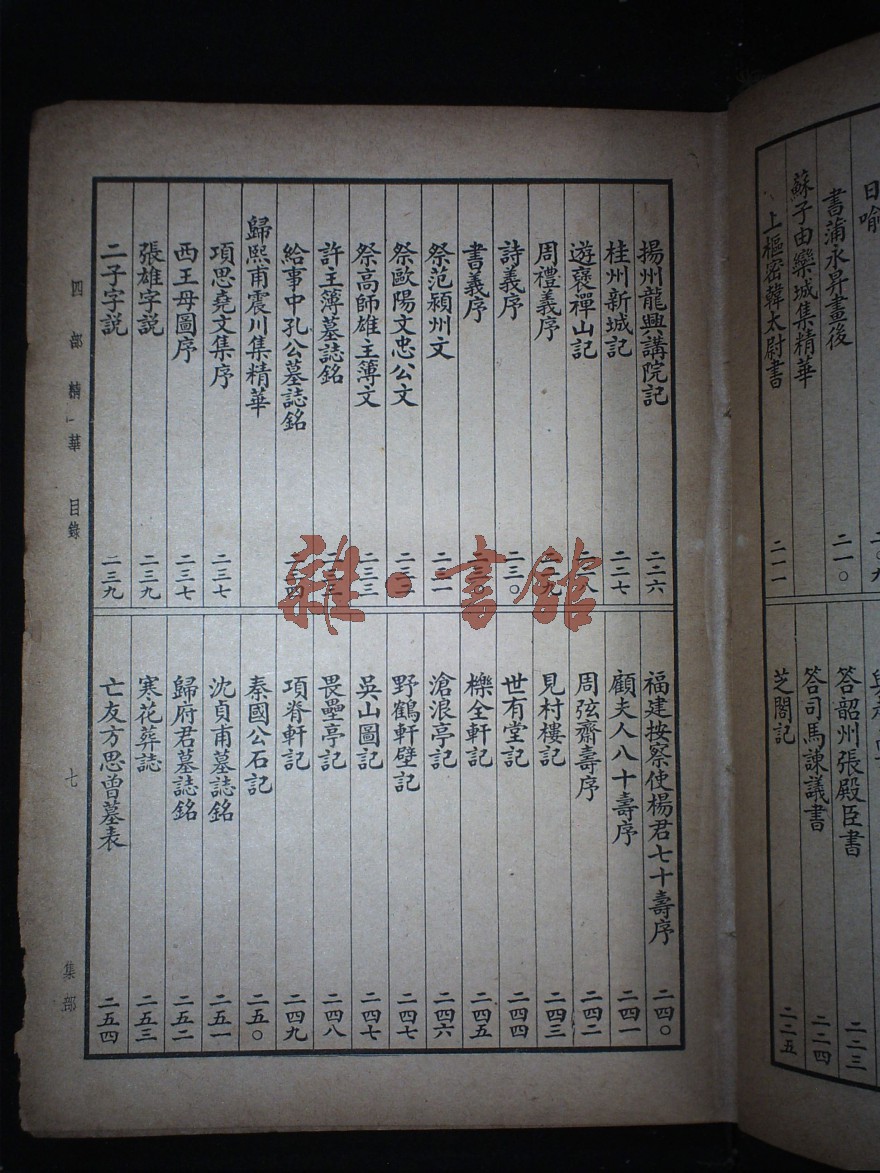 日喻 二〇九
書蒲永昇畫後 二一〇
蘇子由欒城集精華
上樞密韓太尉書 二一一
答韶州張殿臣書 二二三
答司馬諫議書 二二四
芝閣記 二二五
揚州龍興講院記 二二六
桂州新城記 二二七
遊褒禪山記 二二八
周禮義序 二二九
詩義序 二三〇
書義序 二三〇
祭范潁州文 二三一
祭歐陽文忠公文 二三二
祭高師雄主薄文 二三三
許主薄墓誌銘 二三三
給事中孔公墓誌銘 二三四
歸熙甫震川集精華
項思堯文集序 二三七
西王母圖序 二三七
張雄字説 二三九
二子字説 二三九
福建按察使楊君七十壽序 二四〇
顧夫人八十壽序 二四一
周弦齋壽序 二四二
見村樓記 二四三
世有堂記 二四四
櫟全軒記 二四五
滄浪亭記 二四六
野鶴軒壁記 二四七
吳山圖記 二四七
畏壘亭記 二四八
項脊軒記 二四九
秦國公石記 二五〇
沈貞甫墓誌銘 二五一
歸府君墓誌銘 二五二
寒花葬誌 二五三
亡友方思曾墓表 二五四
四部精華 目錄 七 集部
雜·書館